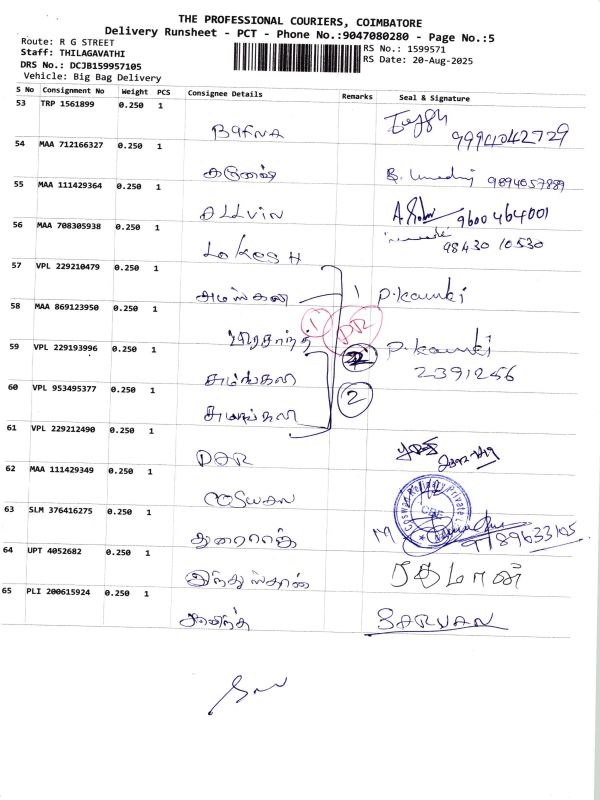 THE PROFESSIONAL COURIERS, COIMBATORE
Delivery Runsheet - PCT - Phone No.:9047080280 - Page No.:5
Route: R G STREET
RS No.: 1599571
Staff: THILAGAVATHI
RS Date: 20-Aug-2025
DRS No.: DCJB159957105
Vehicle: Big Bag Delivery
S No Consignment No Weight PCS Consignee Details Remarks Seal & Signature
53 TRP 1561899 0.250 1
BAFNA 9994042729
54 MAA 712166327 0.250 1
9894057889
55 MAA 111429364 0.250 1
ALLVIN 9600464001
56 MAA 708305938 0.250 1
98430 10530
LOKESH
57 VPL 229210479 0.250 1
1
58 MAA 869123950 0.250 1
1 DR
59 VPL 229193996 0.250 1
2391256
சுமங்கலி
60 VPL 953495377 0.250 1
2
சுமங்கலி
61 VPL 229212490 0.250 1
62 MAA 111429349 0.250 1
COSWAN
63 SLM 376416275 0.250 1
துரைராஜ்
64 UPT 4052682 0.250 1
இந்துஸ்தான்
65 PLI 200615924 0.250 1
SARVAN